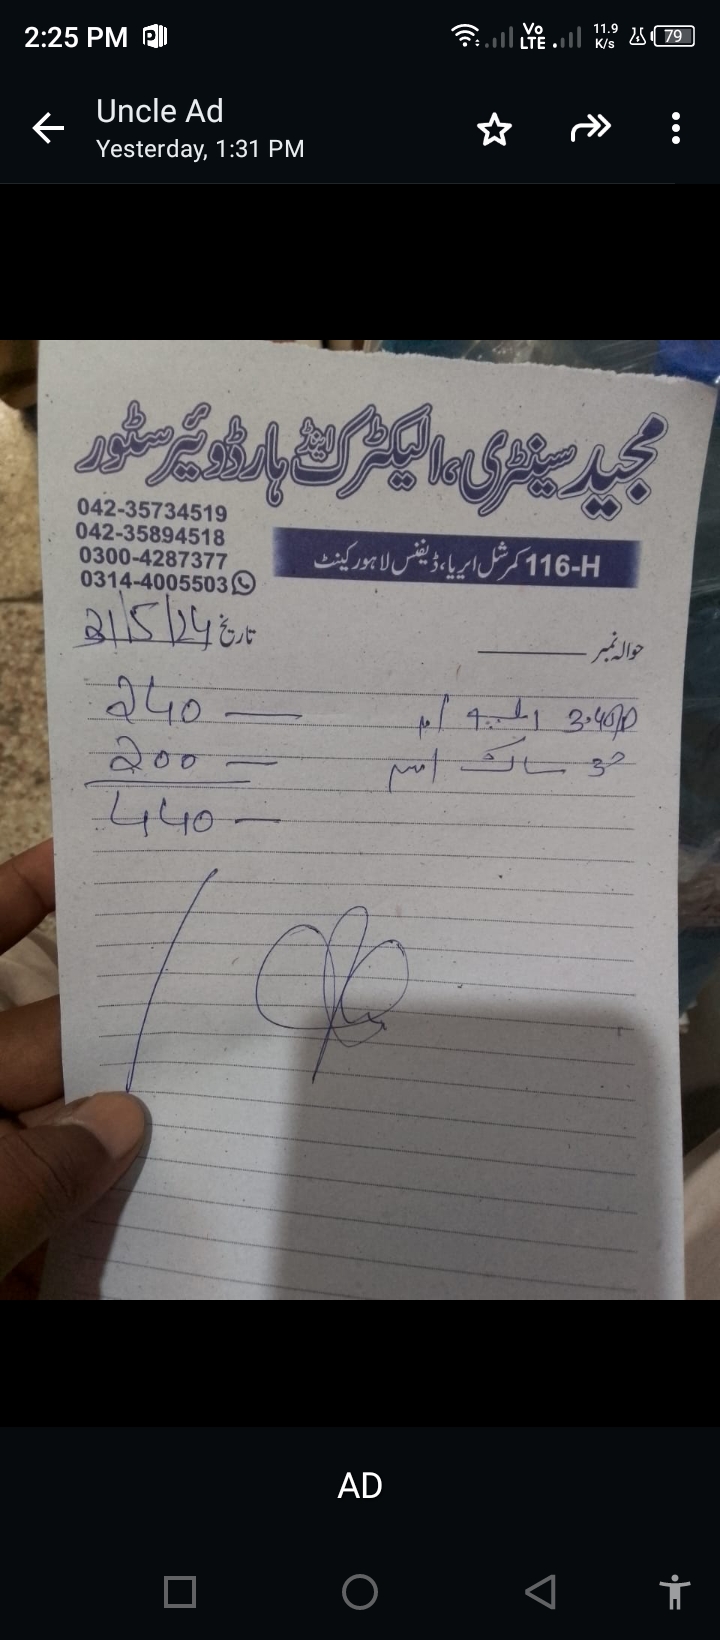 2:25 PM
Vo LTE 11.9 K/s 79
Uncle Ad
Yesterday, 1:31 PM
مجید سینٹری، الیکٹرک اینڈ ہارڈویئر سٹور
042-35734519
042-35894518
0300-4287377
0314-4005503
116-H کمرشل ایریا، ڈیفنس لاہور کینٹ
تاریخ 31/5/24
حوالہ نمبر
240 —
200 —
440 —
AD